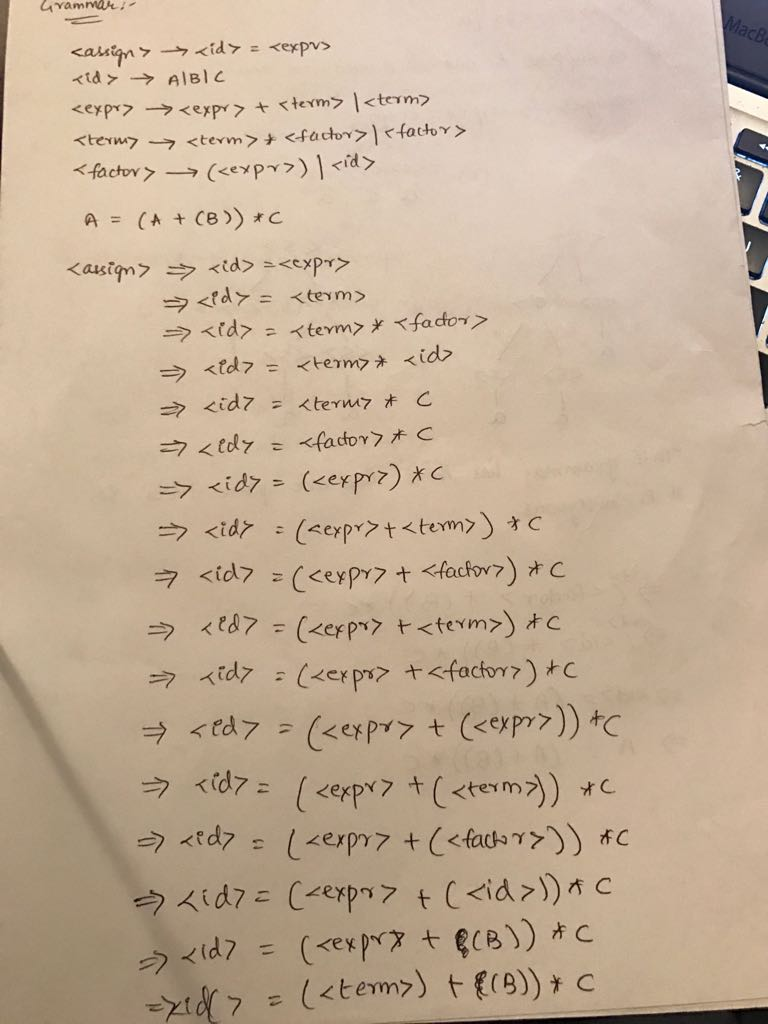 Grammar:-
<assign> → <id> = <expr>
<id> → A|B|C
<expr> → <expr> + <term> | <term>
<term> → <term> * <factor> | <factor>
<factor> → (<expr>) | <id>
A = (A + (B)) * C
<assign> ⇒ <id> = <expr>
⇒ <id> = <term>
⇒ <id> = <term> * <factor>
⇒ <id> = <term> * <id>
⇒ <id> = <term> * C
⇒ <id> = <factor> * C
⇒ <id> = (<expr>) * C
⇒ <id> = (<expr> + <term>) * C
⇒ <id> = (<expr> + <factor>) * C
⇒ <id> = (<expr> + <term>) * C
⇒ <id> = (<expr> + <factor>) * C
⇒ <id> = (<expr> + (<expr>)) * C
⇒ <id> = (<expr> + (<term>)) * C
⇒ <id> = (<expr> + (<factor>)) * C
⇒ <id> = (<expr> + (<id>)) * C
⇒ <id> = (<expr> + (B)) * C
⇒ <id> = (<term>) + (B)) * C
MacB